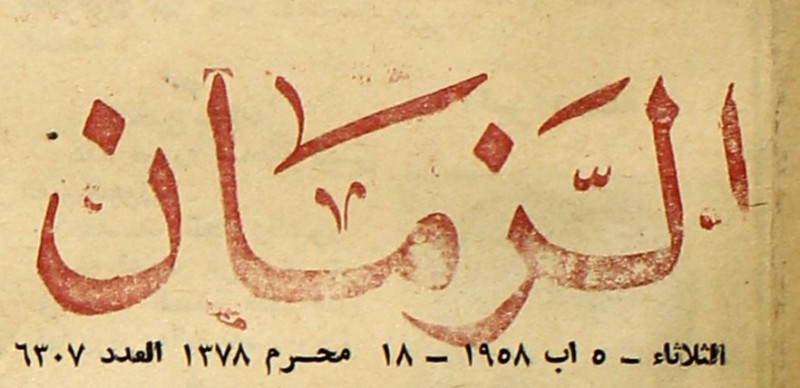 الزّمان
الثلاثاء ـ ٥ اب ١٩٥٨ ـ ١٨ محرم ١٣٧٨ العدد ٦٣٠٧